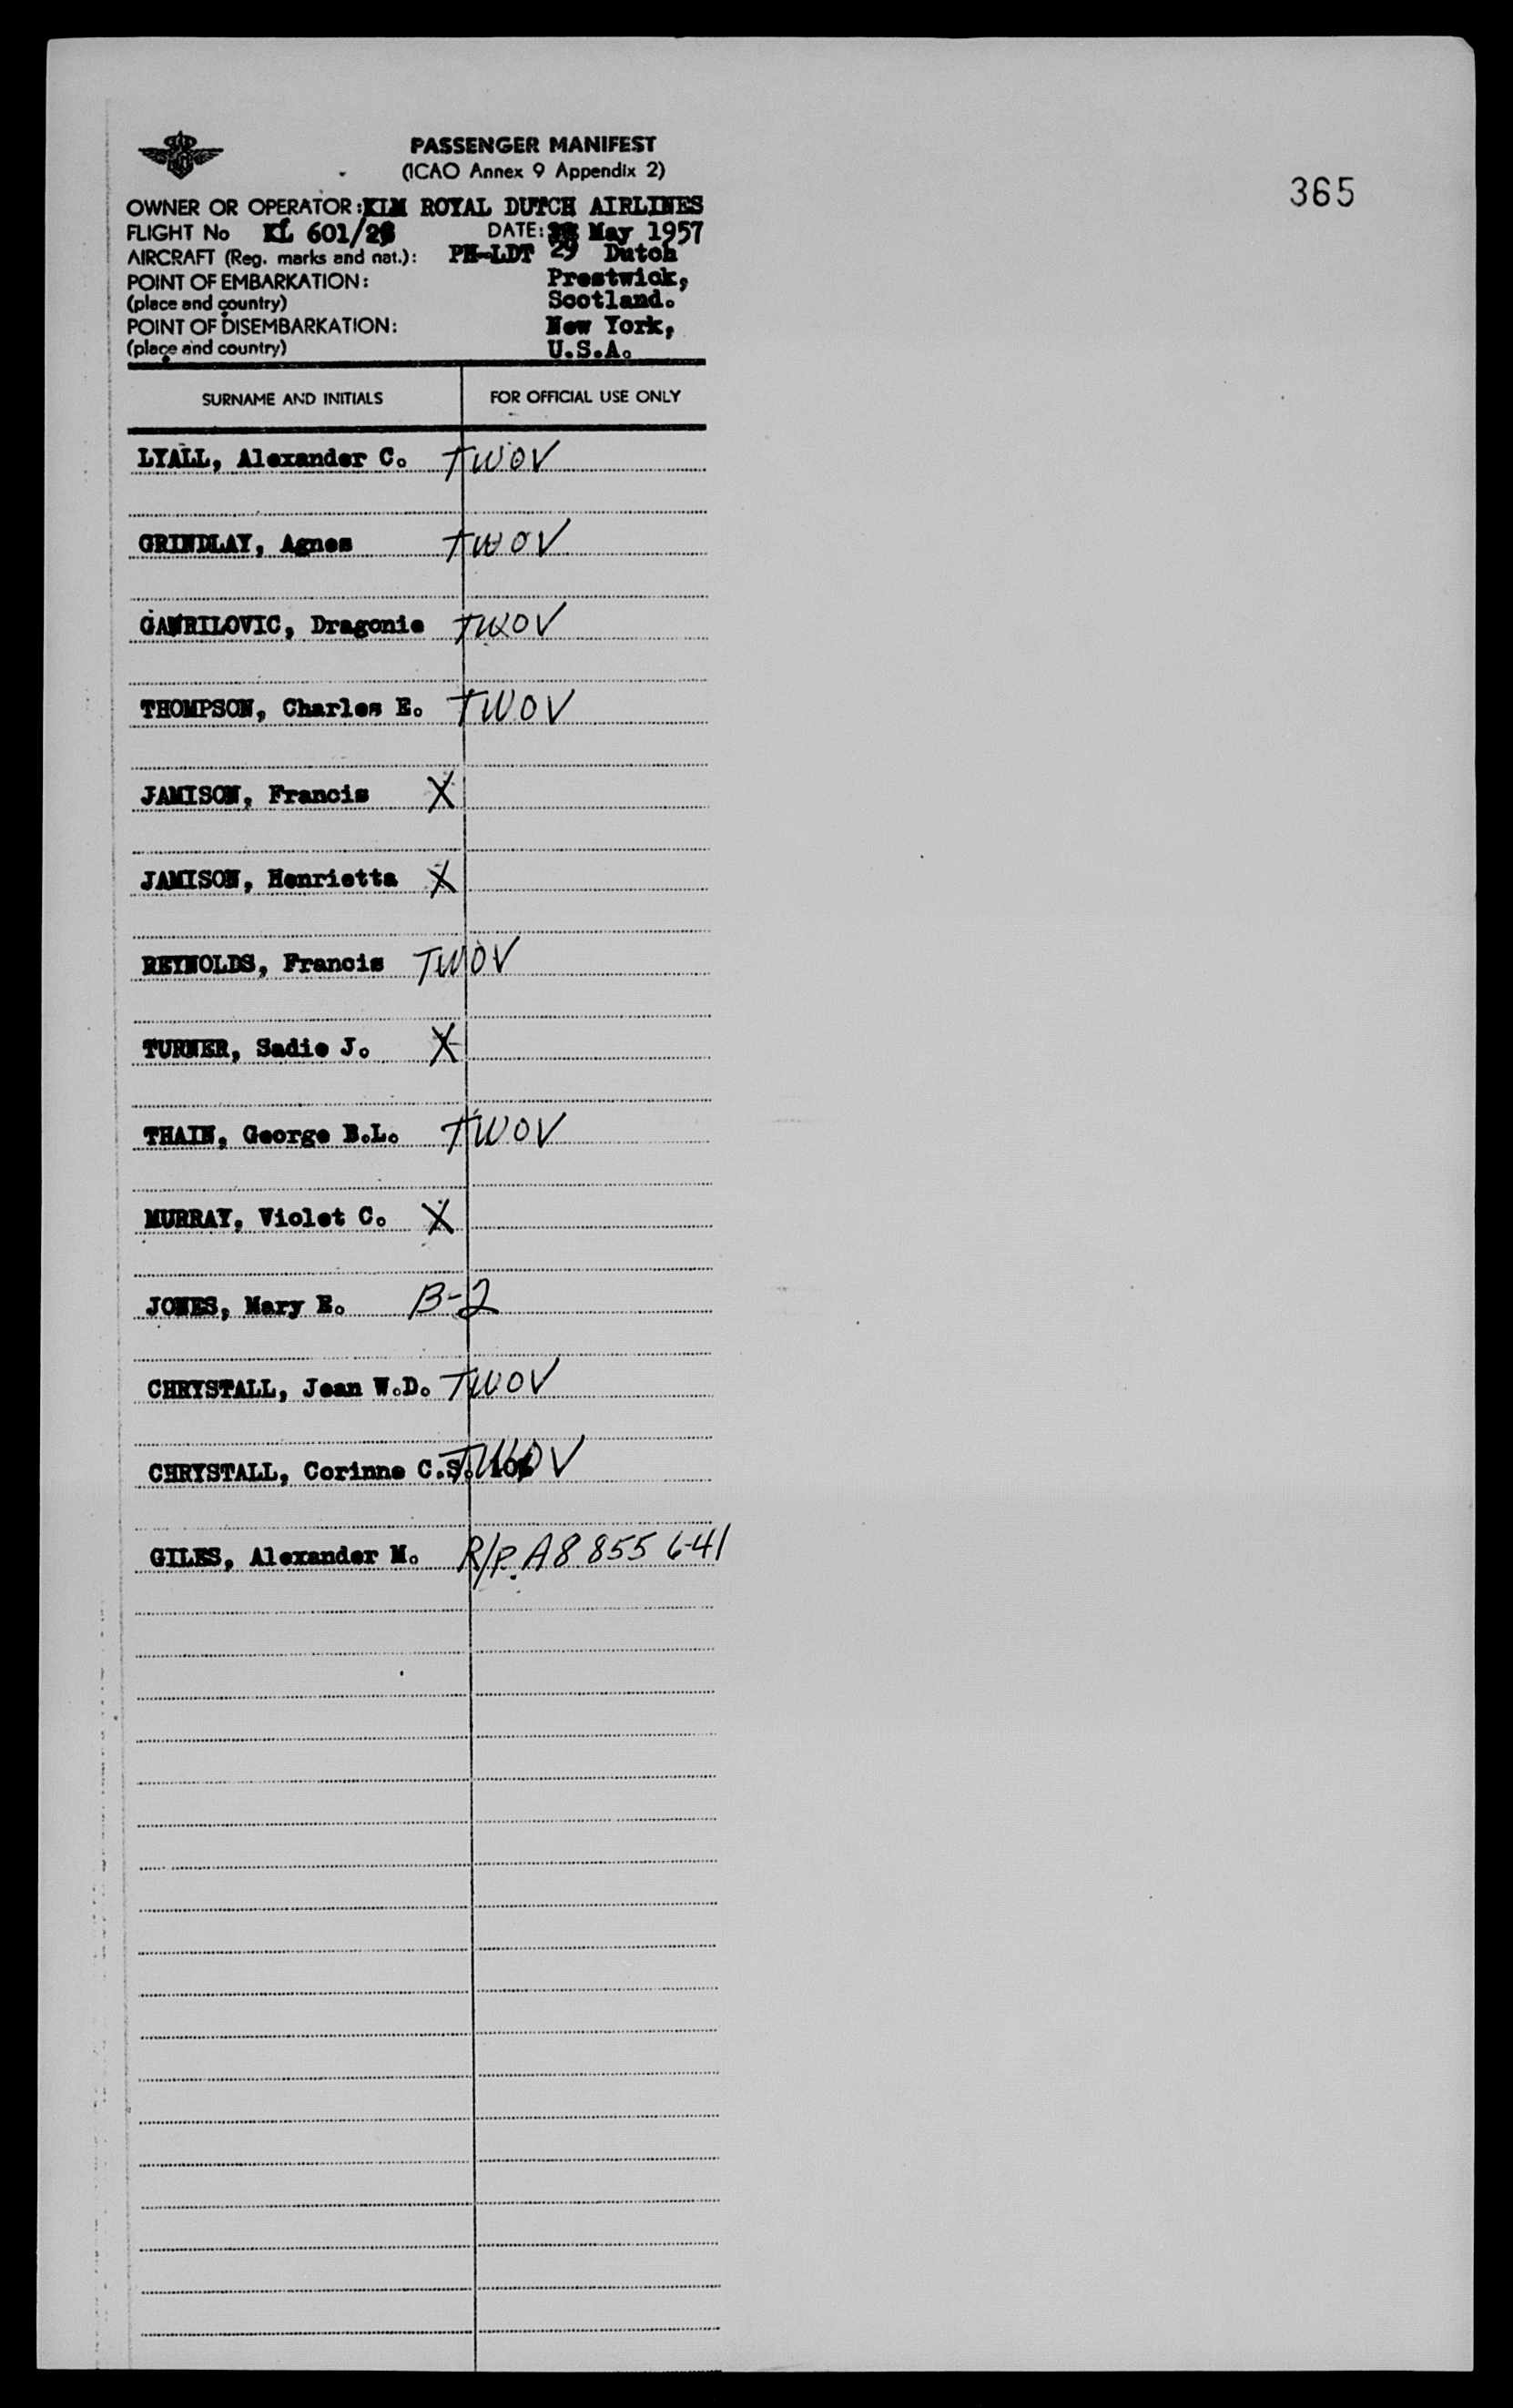 365
PASSENGER MANIFEST
(ICAO Annex 9 Appendix 2)
OWNER OR OPERATOR: KLM ROYAL DUTCH AIRLINES
FLIGHT No KL 601/28 DATE: May 1957
AIRCRAFT (Reg. marks and nat.): PH-LDT 29 Dutch
POINT OF EMBARKATION: Prestwick,
(place and country) Scotland.
POINT OF DISEMBARKATION: New York,
(place and country) U.S.A.
SURNAME AND INITIALS FOR OFFICIAL USE ONLY
LYALL, Alexander C. TWOV
GRINDLAY, Agnes TWOV
GAWRILOVIC, Dragonie TWOV
THOMPSON, Charles E. TWOV
JAMISON, Francis X
JAMISON, Henrietta X
REYNOLDS, Francis TWOV
TURNER, Sadie J. X
THAIN, George B.L. TWOV
MURRAY, Violet C. X
JONES, Mary E. B-2
CHRYSTALL, Jean W.D. TWOV
CHRYSTALL, Corinne C.S. TWOV
GILES, Alexander M. R/P A8 855 641